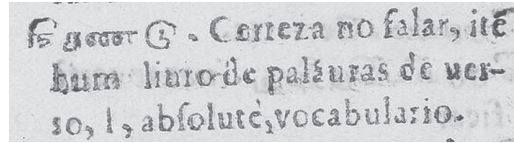 . Certeza no falar, itē
hum liuro de palauras de uer-
so, l, abſolutè, vocabulario.